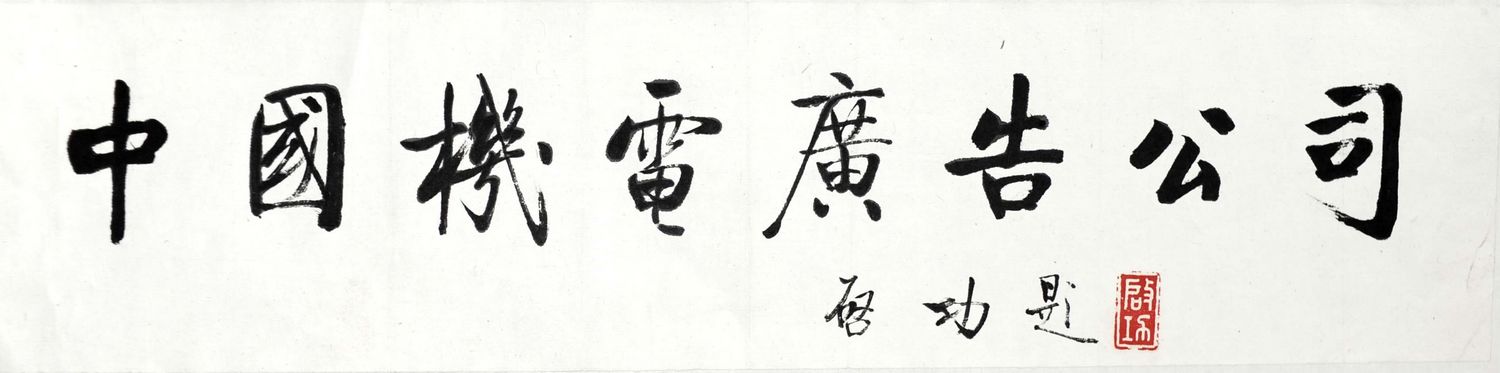 中國機電廣告公司
启功題
啟功